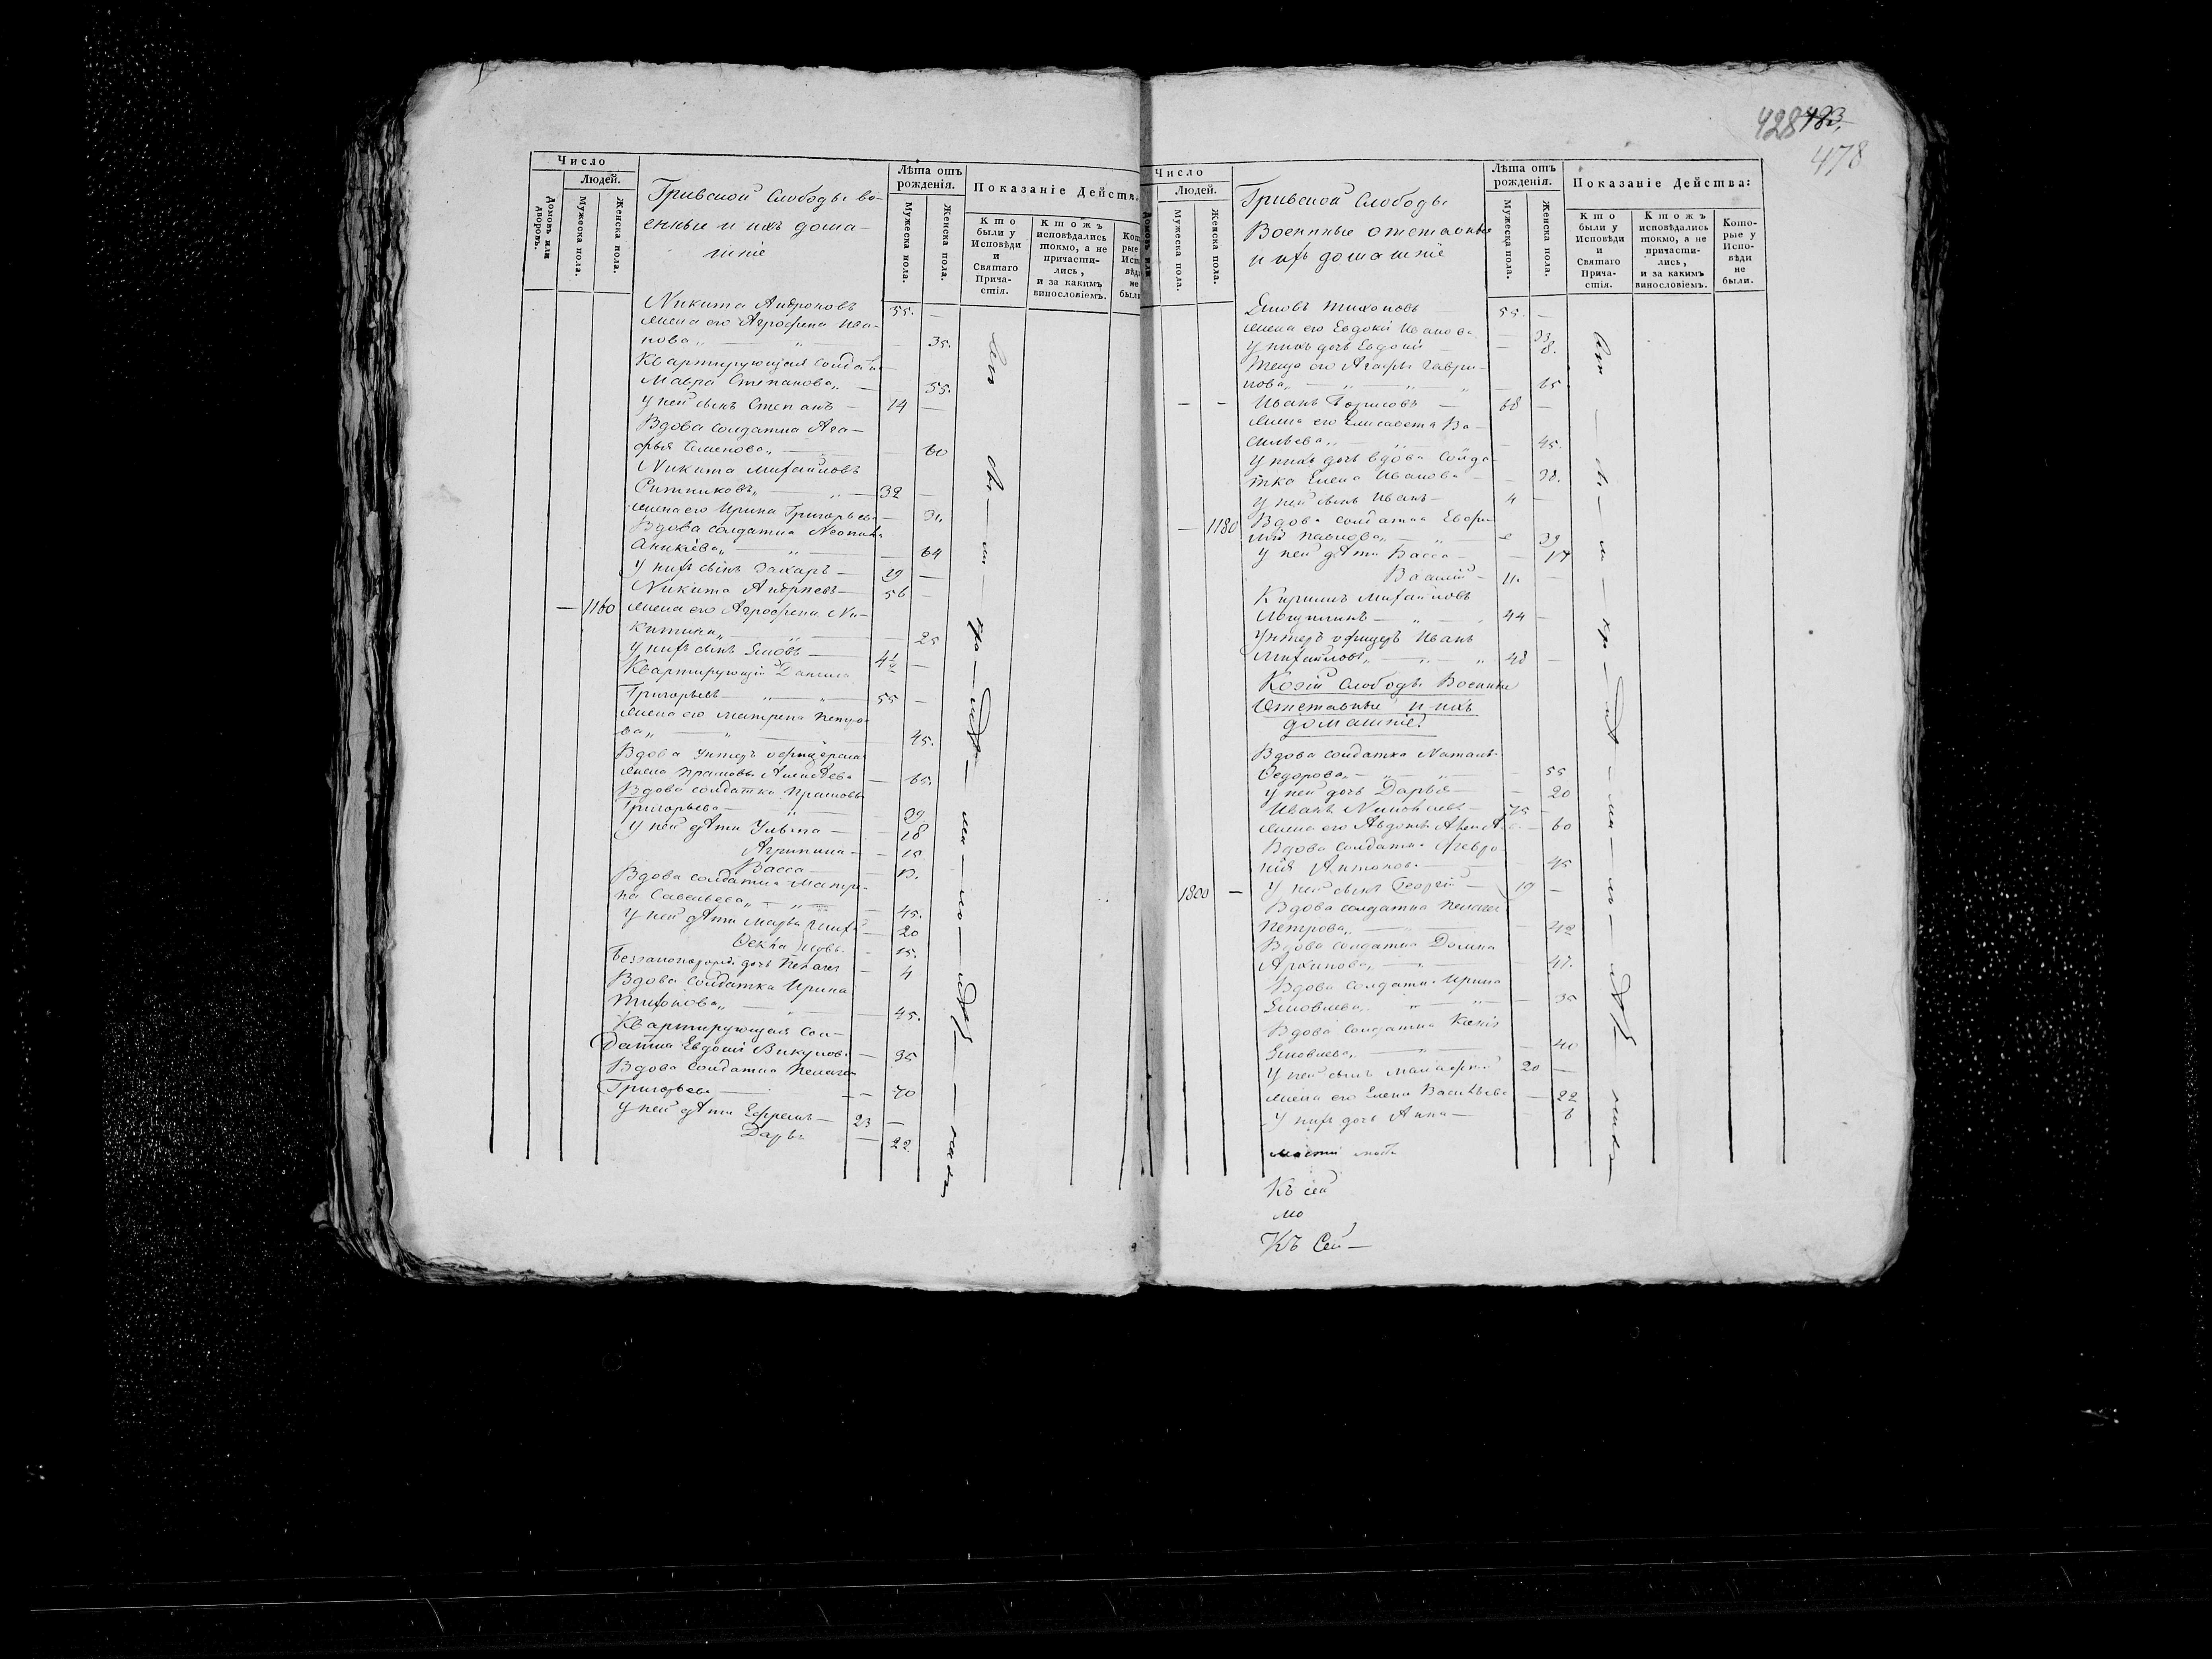 428 483.
478
Число
Людей.
Домовъ или дворовъ.
Мужеска пола.
Женска пола.
Гривской Слободы во-
енные и ихъ дома-
шніе
Лѣта отъ рожденія.
Мужеска пола.
Женска пола.
Показаніе Действ
Кто были у Исповѣди и Святаго Прича-стія.
Ктожъ исповѣдались токмо, а не причасти-лись, и за какимъ винословіемъ.
Никита Андроновъ 55. —
жена его Агрофена Ива-
нова „ — 35.
Квартирующая солдат
Мавра Степанова „ — 55.
у ней сынъ Степанъ — 14 —
Вдова солдатка Ага-
фья Семенова „ — 60
Никита Михайловъ
Ситниковъ „ — 32 —
жена его Ирина Григорьева — 31.
Вдова солдатка
Аникіева „ — 64
у нихъ сынъ Захаръ — 29 —
Никита Андреевъ — 56 —
— 1160 жена его Агрофена Ни-
китина „ — 25
у нихъ сынъ Яковъ — 4 1/2 —
Квартирующій Данила
Григорьевъ — 55 —
жена его Матрена Петро-
ва „ — 45.
Вдова Унтеръ офицерска
жена Прасковья Алексѣева — 65.
Вдова солдатка Прасковья
Григорьева — 39.
у ней дѣти Ульяна — 18
Агрипина — 15
Васса — 13.
Вдова солдатка Матре-
на Савельева „ — 45.
у ней дѣти Марья Миха — 20
Ѳекла йловы — 15.
дочь Пелагея — 4
Вдова солдатка Ирина
Тихонова „ — 45.
Квартирующая Сол-
датка Евдокія Викулова — 35
Вдова солдатка Пелагея
Григорьева — 70
у ней дѣти Ефремъ — 23 —
Дарья — 22
Число
Людей.
Мужеска пола.
Женска пола.
Гривской Слободы
Военные отставные
и ихъ домашніе
Лѣта отъ рожденія.
Мужеска пола.
Женска пола.
Показаніе Действа:
Кто были у Исповѣди и Святаго Прича-стія.
Ктожъ исповѣдались токмо, а не причасти-лись, и за какимъ винословіемъ.
Кото-рые у Испо-вѣди не были.
Яковъ Тихоновъ 55. —
жена его Евдокія Иванова — 33
у нихъ дочь Евдокія — 8.
Теща его Агафья Гаври-
лова „ — 65
— — Иванъ Борисовъ — 68 —
жена его Елисавета Ва-
сильева „ — 45.
у нихъ дочь вдова Солда-
тка Елена Иванова — 38.
у ней сынъ Иванъ — 4 —
— 1180 Вдова солдатка Евфи-
мія Павлова „ — 39
у ней дѣти Васса — 17
Василій — 11. —
Кирилъ Михайловъ
44 —
Унтеръ офицеръ Иванъ
Михайловъ „ — 48 —
Козій слободы Военные
Отставные и ихъ
домашніе.
Вдова солдатка Наталья
Ѳедорова „ — 55
у ней дочь Дарья — 20
Иванъ Николаевъ — 75 —
жена его Авдотья — 60
Вдова солдатка Февро-
нія Антонова — 45
1800 — у ней сынъ Георгій — 19 —
Вдова солдатка Пелагея
Петрова „ — 42
Вдова солдатка Домна
Архипова „ — 47.
Вдова солдатка Ирина
Яковлева „ — 35
Вдова солдатка
Яковлева „ — 40
у ней сынъ 20 —
жена его Елена Васильева — 22
у нихъ дочь Анна — 6
Къ сей
мо
Къ Сей —